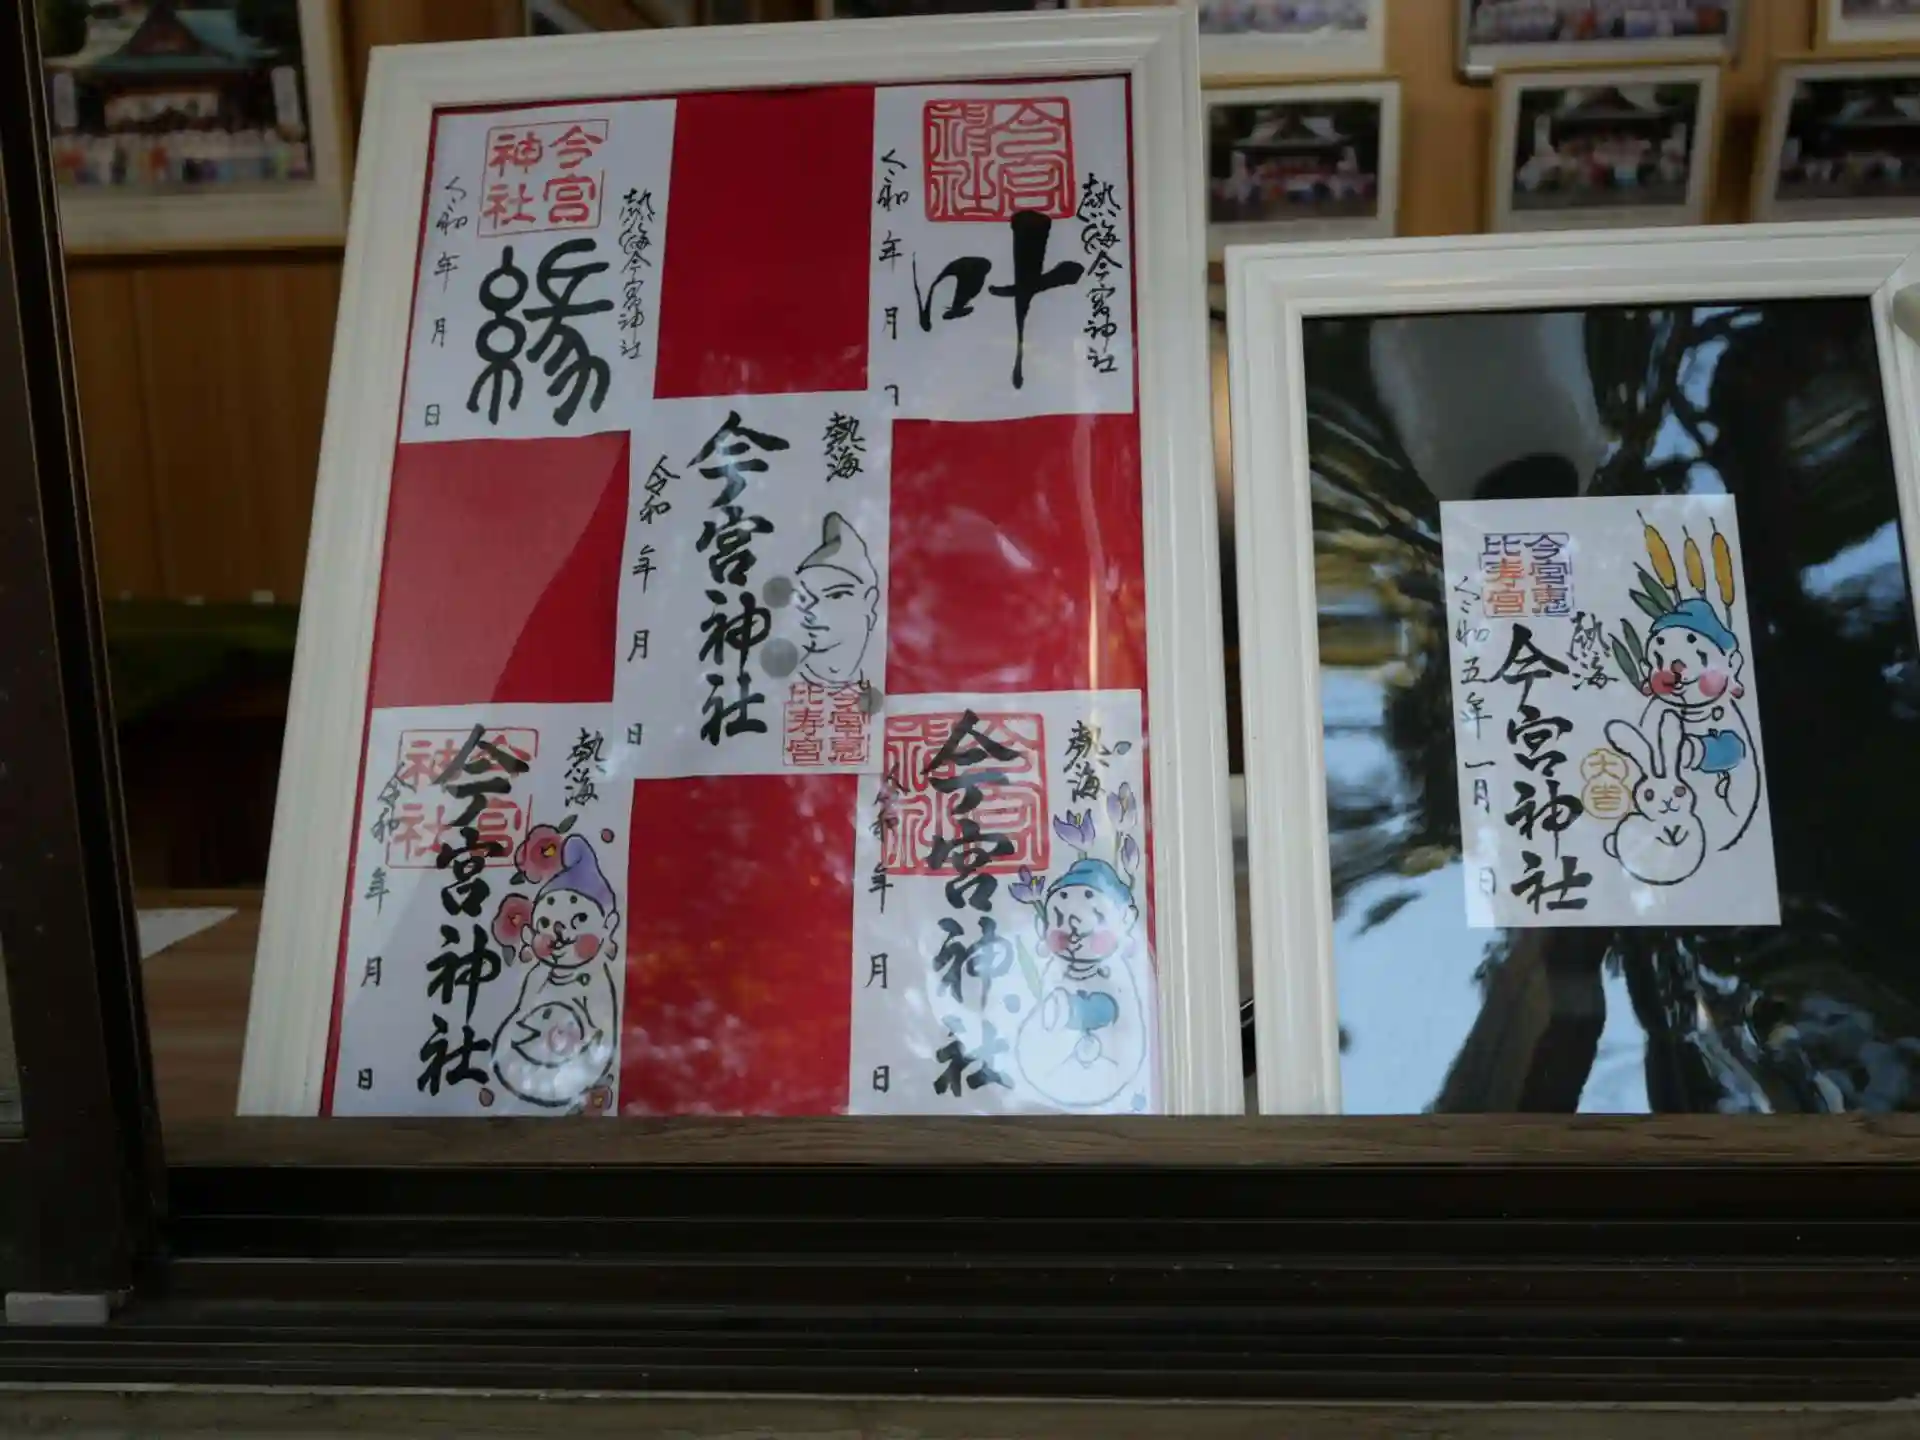 熱海今宮神社
今宮
神社
縁
令和
年
月
日
熱海今宮神社
今宮
神社
叶
令和
年
月
熱海
今宮神社
令和
年
月
日
今宮恵
比寿宮
熱海
今宮
神社
今宮神社
令和
年
月
日
熱海
今宮
神社
今宮神社
令和
年
月
日
今宮恵
比寿宮
熱海
今宮神社
大吉
令和五年一月
日